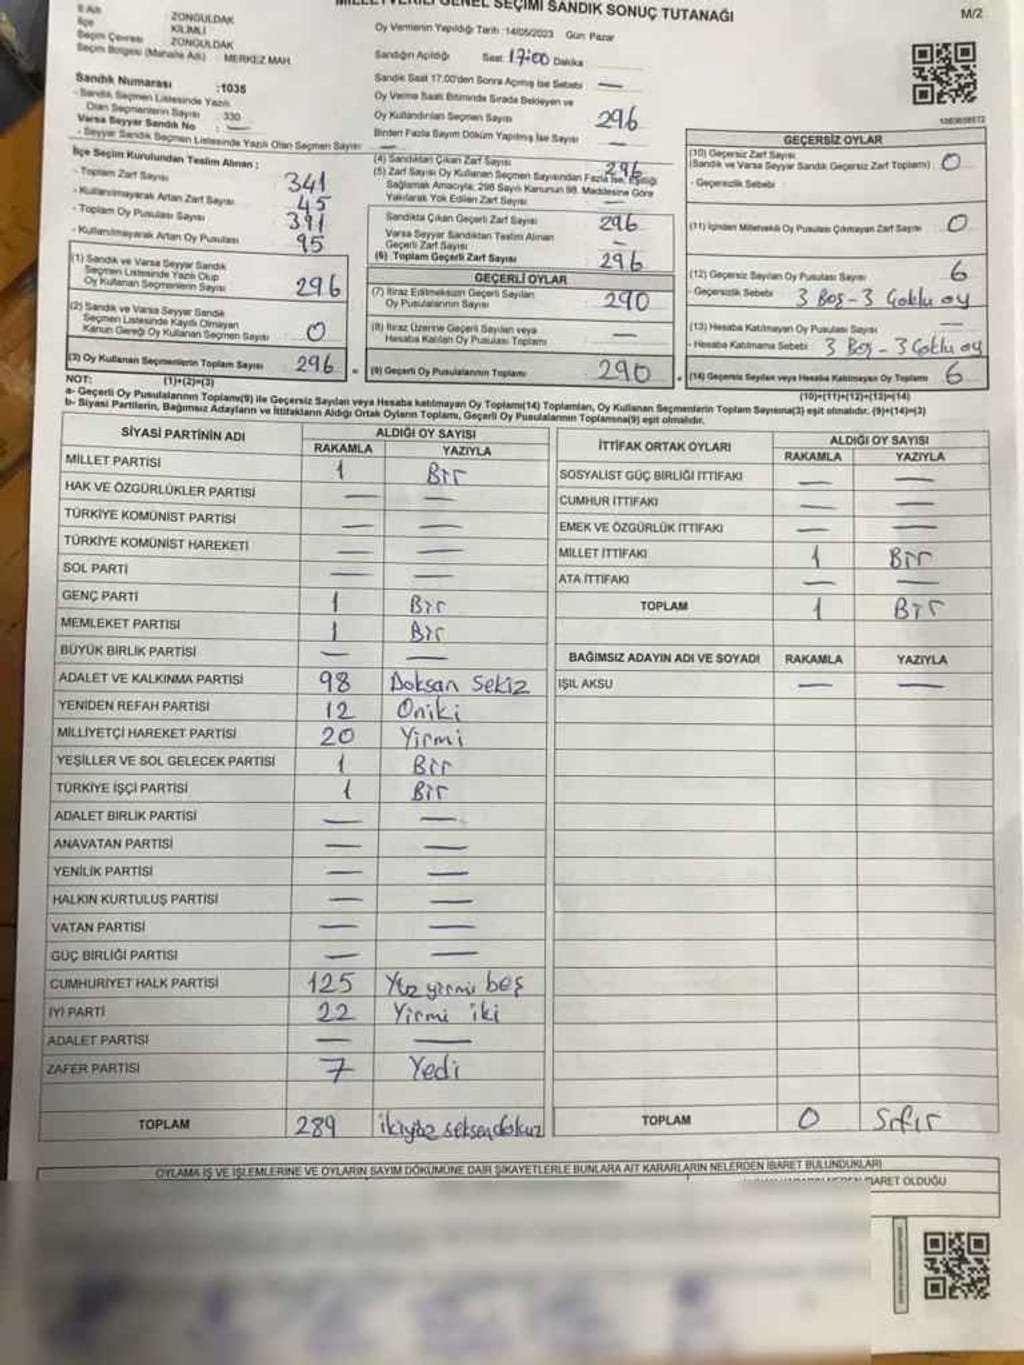 MİLLETVEKİLİ GENEL SEÇİMİ SANDIK SONUÇ TUTANAĞI
M/2
İli Adı ZONGULDAK
İlçe KİLİMLİ
Seçim Çevresi ZONGULDAK
Seçim Bölgesi (Mahalle Adı) : MERKEZ MAH.
Oy Vermenin Yapıldığı Tarih :14/05/2023 Gün: Pazar
Sandığın Açıldığı Saat 17:00 Dakika
Sandık Saat 17.00'den Sonra Açılmış İse Sebebi —
Oy Verme Saati Bitiminde Sırada Bekleyen ve
Oy Kullandırılan Seçmen Sayısı 296
Birden Fazla Sayım Döküm Yapılmış İse Sayısı —
Sandık Numarası :1035
- Sandık Seçmen Listesinde Yazılı
Olan Seçmenlerin Sayısı 330
Varsa Seyyar Sandık No : —
- Seyyar Sandık Seçmen Listesinde Yazılı Olan Seçmen Sayısı
İlçe Seçim Kurulundan Teslim Alınan :
- Toplam Zarf Sayısı 341
- Kullanılmayarak Artan Zarf Sayısı 45
- Toplam Oy Pusulası Sayısı 391
- Kullanılmayarak Artan Oy Pusulası 95
(1) Sandık ve Varsa Seyyar Sandık
Seçmen Listesinde Yazılı Olup
Oy Kullanan Seçmenlerin Sayısı 296
(2) Sandık ve Varsa Seyyar Sandık
Seçmen Listesinde Kayıtlı Olmayan
Kanun Gereği Oy Kullanan Seçmen Sayısı 0
(3) Oy Kullanan Seçmenlerin Toplam Sayısı 296
(1)+(2)=(3)
(4) Sandıktan Çıkan Zarf Sayısı 296
(5) Zarf Sayısı Oy Kullanan Seçmen Sayısından Fazla İse, Eşitliği
Sağlamak Amacıyla, 298 Sayılı Kanunun 98. Maddesine Göre
Yakılarak Yok Edilen Zarf Sayısı —
Sandıkta Çıkan Geçerli Zarf Sayısı 296
Varsa Seyyar Sandıktan Teslim Alınan
Geçerli Zarf Sayısı —
(6) Toplam Geçerli Zarf Sayısı 296
GEÇERLİ OYLAR
(7) İtiraz Edilmeksizin Geçerli Sayılan
Oy Pusulalarının Sayısı 290
(8) İtiraz Üzerine Geçerli Sayılan veya
Hesaba Katılan Oy Pusulası Toplamı —
(9) Geçerli Oy Pusulalarının Toplamı 290
GEÇERSİZ OYLAR
(10) Geçersiz Zarf Sayısı
(Sandık ve Varsa Seyyar Sandık Geçersiz Zarf Toplamı) : 0
- Geçersizlik Sebebi
(11) İçinden Milletvekili Oy Pusulası Çıkmayan Zarf Sayısı 0
(12) Geçersiz Sayılan Oy Pusulası Sayısı 6
- Geçersizlik Sebebi 3 Boş - 3 Çoklu oy
(13) Hesaba Katılmayan Oy Pusulası Sayısı —
- Hesaba Katılmama Sebebi : 3 Boş - 3 Çoklu oy
(14) Geçersiz Sayılan veya Hesaba Katılmayan Oy Toplamı 6
(10)+(11)+(12)+(13)=(14)
NOT:
a- Geçerli Oy Pusulalarının Toplamı(9) ile Geçersiz Sayılan veya Hesaba katılmayan Oy Toplamı(14) Toplamları, Oy Kullanan Seçmenlerin Toplam Sayısına(3) eşit olmalıdır. (9)+(14)=(3)
b- Siyasi Partilerin, Bağımsız Adayların ve İttifakların Aldığı Ortak Oyların Toplamı, Geçerli Oy Pusulalarının Toplamına(9) eşit olmalıdır.
SİYASİ PARTİNİN ADI ALDIĞI OY SAYISI
RAKAMLA YAZIYLA
MİLLET PARTİSİ 1 Bir
HAK VE ÖZGÜRLÜKLER PARTİSİ — —
TÜRKİYE KOMÜNİST PARTİSİ — —
TÜRKİYE KOMÜNİST HAREKETİ — —
SOL PARTİ — —
GENÇ PARTİ 1 Bir
MEMLEKET PARTİSİ 1 Bir
BÜYÜK BİRLİK PARTİSİ — —
ADALET VE KALKINMA PARTİSİ 98 Doksan Sekiz
YENİDEN REFAH PARTİSİ 12 Oniki
MİLLİYETÇİ HAREKET PARTİSİ 20 Yirmi
YEŞİLLER VE SOL GELECEK PARTİSİ 1 Bir
TÜRKİYE İŞÇİ PARTİSİ 1 Bir
ADALET BİRLİK PARTİSİ — —
ANAVATAN PARTİSİ — —
YENİLİK PARTİSİ — —
HALKIN KURTULUŞ PARTİSİ — —
VATAN PARTİSİ — —
GÜÇ BİRLİĞİ PARTİSİ — —
CUMHURİYET HALK PARTİSİ 125 Yüz yirmi beş
İYİ PARTİ 22 Yirmi iki
ADALET PARTİSİ — —
ZAFER PARTİSİ 7 Yedi
TOPLAM 289 ikiyüz seksendokuz
İTTİFAK ORTAK OYLARI ALDIĞI OY SAYISI
RAKAMLA YAZIYLA
SOSYALİST GÜÇ BİRLİĞİ İTTİFAKI — —
CUMHUR İTTİFAKI — —
EMEK VE ÖZGÜRLÜK İTTİFAKI — —
MİLLET İTTİFAKI 1 Bir
ATA İTTİFAKI — —
TOPLAM 1 Bir
BAĞIMSIZ ADAYIN ADI VE SOYADI RAKAMLA YAZIYLA
IŞIL AKSU — —
TOPLAM 0 Sıfır
OYLAMA İŞ VE İŞLEMLERİNE VE OYLARIN SAYIM DÖKÜMÜNE DAİR ŞİKAYETLERLE BUNLARA AİT KARARLARIN NELERDEN İBARET BULUNDUKLARI
İBARET OLDUĞU